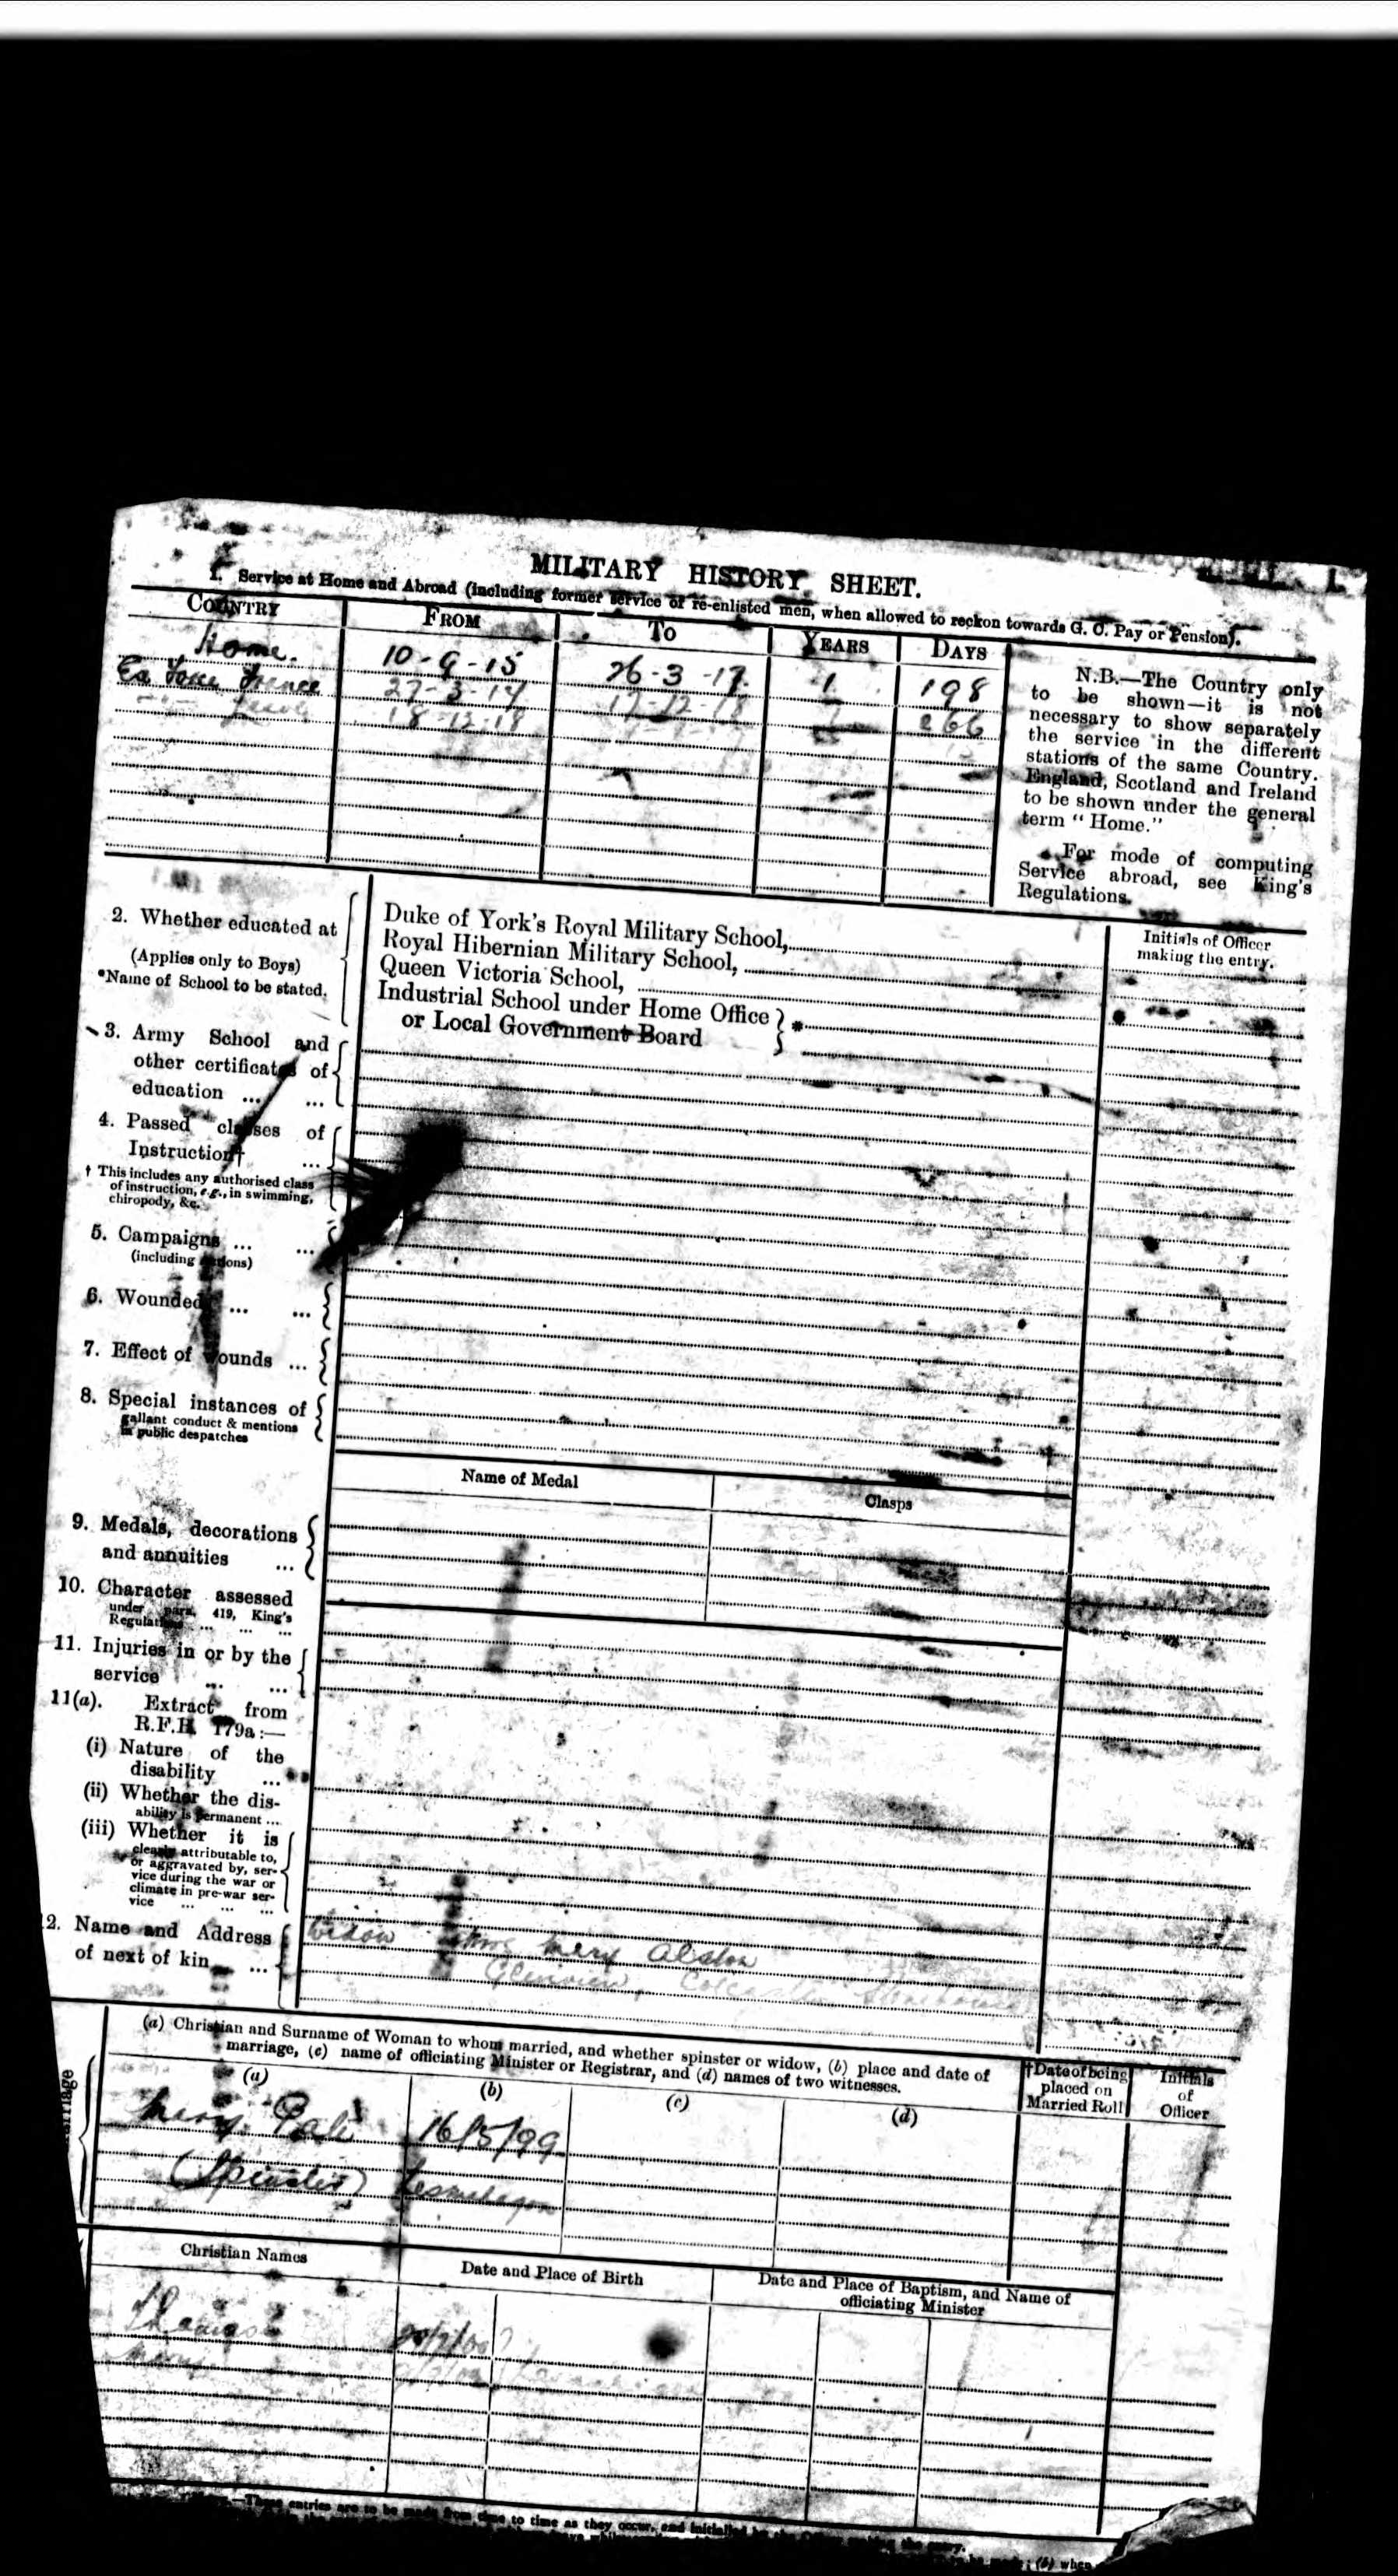 MILITARY HISTORY SHEET.
1. Service at Home and Abroad (including former service of re-enlisted men, when allowed to reckon towards G. C. Pay or Pension).
COUNTRY FROM TO YEARS DAYS
Home. 10-9-15 26-3-17. 1 198
France 27-3-17 17-12-18 1 266
18-12-18
N.B.—The Country only
to be shown—it is not
necessary to show separately
the service in the different
stations of the same Country.
England, Scotland and Ireland
to be shown under the general
term "Home."
For mode of computing
Service abroad, see King's
Regulations.
Initials of Officer
making the entry.
2. Whether educated at
(Applies only to Boys)
*Name of School to be stated.
Duke of York's Royal Military School,
Royal Hibernian Military School,
Queen Victoria School,
Industrial School under Home Office
or Local Government Board } *
3. Army School and
other certificates of
education ... ...
4. Passed classes of
Instruction† ...
† This includes any authorised class
of instruction, e.g., in swimming,
chiropody, &c.
5. Campaigns ... ...
(including actions)
6. Wounded ... ...
7. Effect of wounds ...
8. Special instances of
gallant conduct & mentions
in public despatches
Name of Medal Clasps
9. Medals, decorations
and annuities ...
10. Character assessed
under para. 419, King's
Regulations ... ... ...
11. Injuries in or by the
service ... ...
11(a). Extract from
R.F.B. 179a:—
(i) Nature of the
disability ...
(ii) Whether the dis-
ability is permanent ...
(iii) Whether it is
clearly attributable to,
or aggravated by, ser-
vice during the war or
climate in pre-war ser-
vice ... ... ...
2. Name and Address
of next of kin ...
Widow Mary Alston
Glenview,
(a) Christian and Surname of Woman to whom married, and whether spinster or widow, (b) place and date of
marriage, (c) name of officiating Minister or Registrar, and (d) names of two witnesses.
†Date of being
placed on
Married Roll
Initials
of
Officer
(a) (b) (c) (d)
Mary 16/5/99
(Spinster) Lesmahagow
Christian Names Date and Place of Birth Date and Place of Baptism, and Name of
officiating Minister
Mary
These entries are to be made from time to time as they occur, and initialled by the Officer making the entry.
(b) when